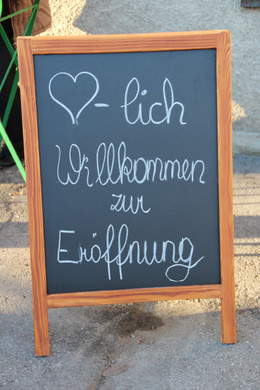 ♡-lich
Willkommen
zur
Eröffnung